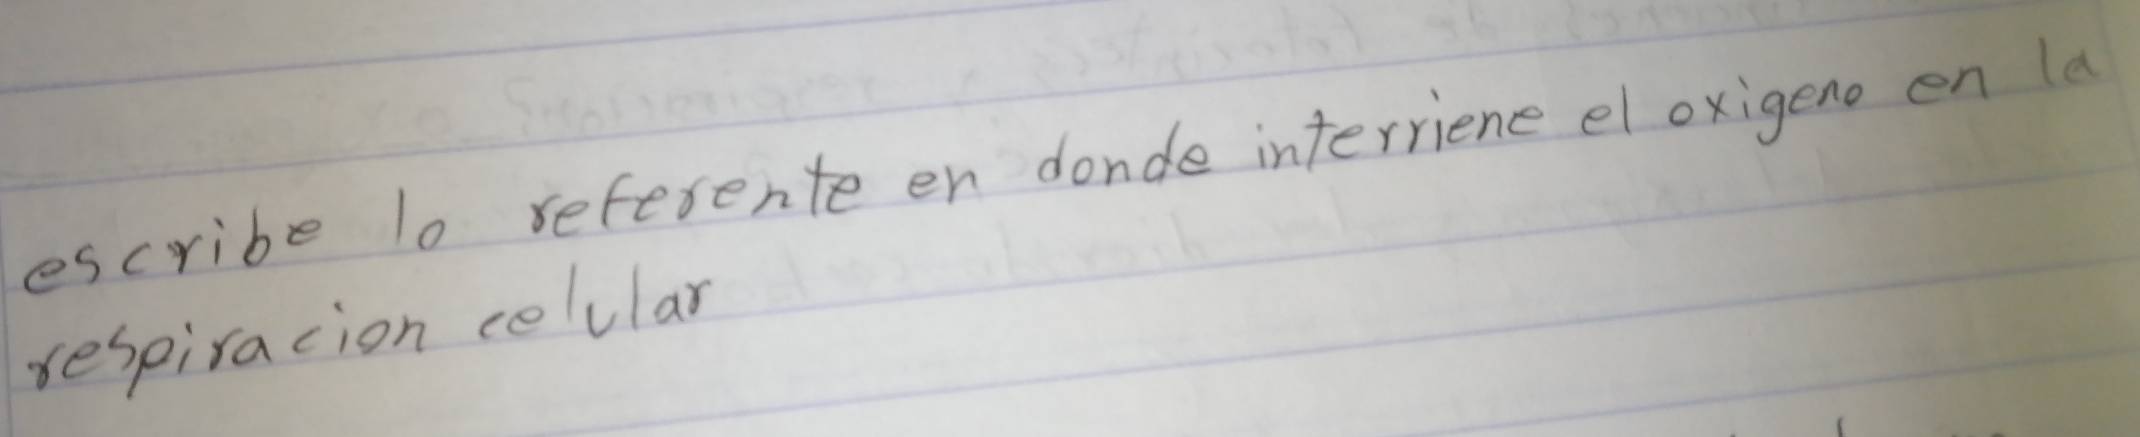 escribe lo referente en donde interviene el oxigeno en la
respiracion celular